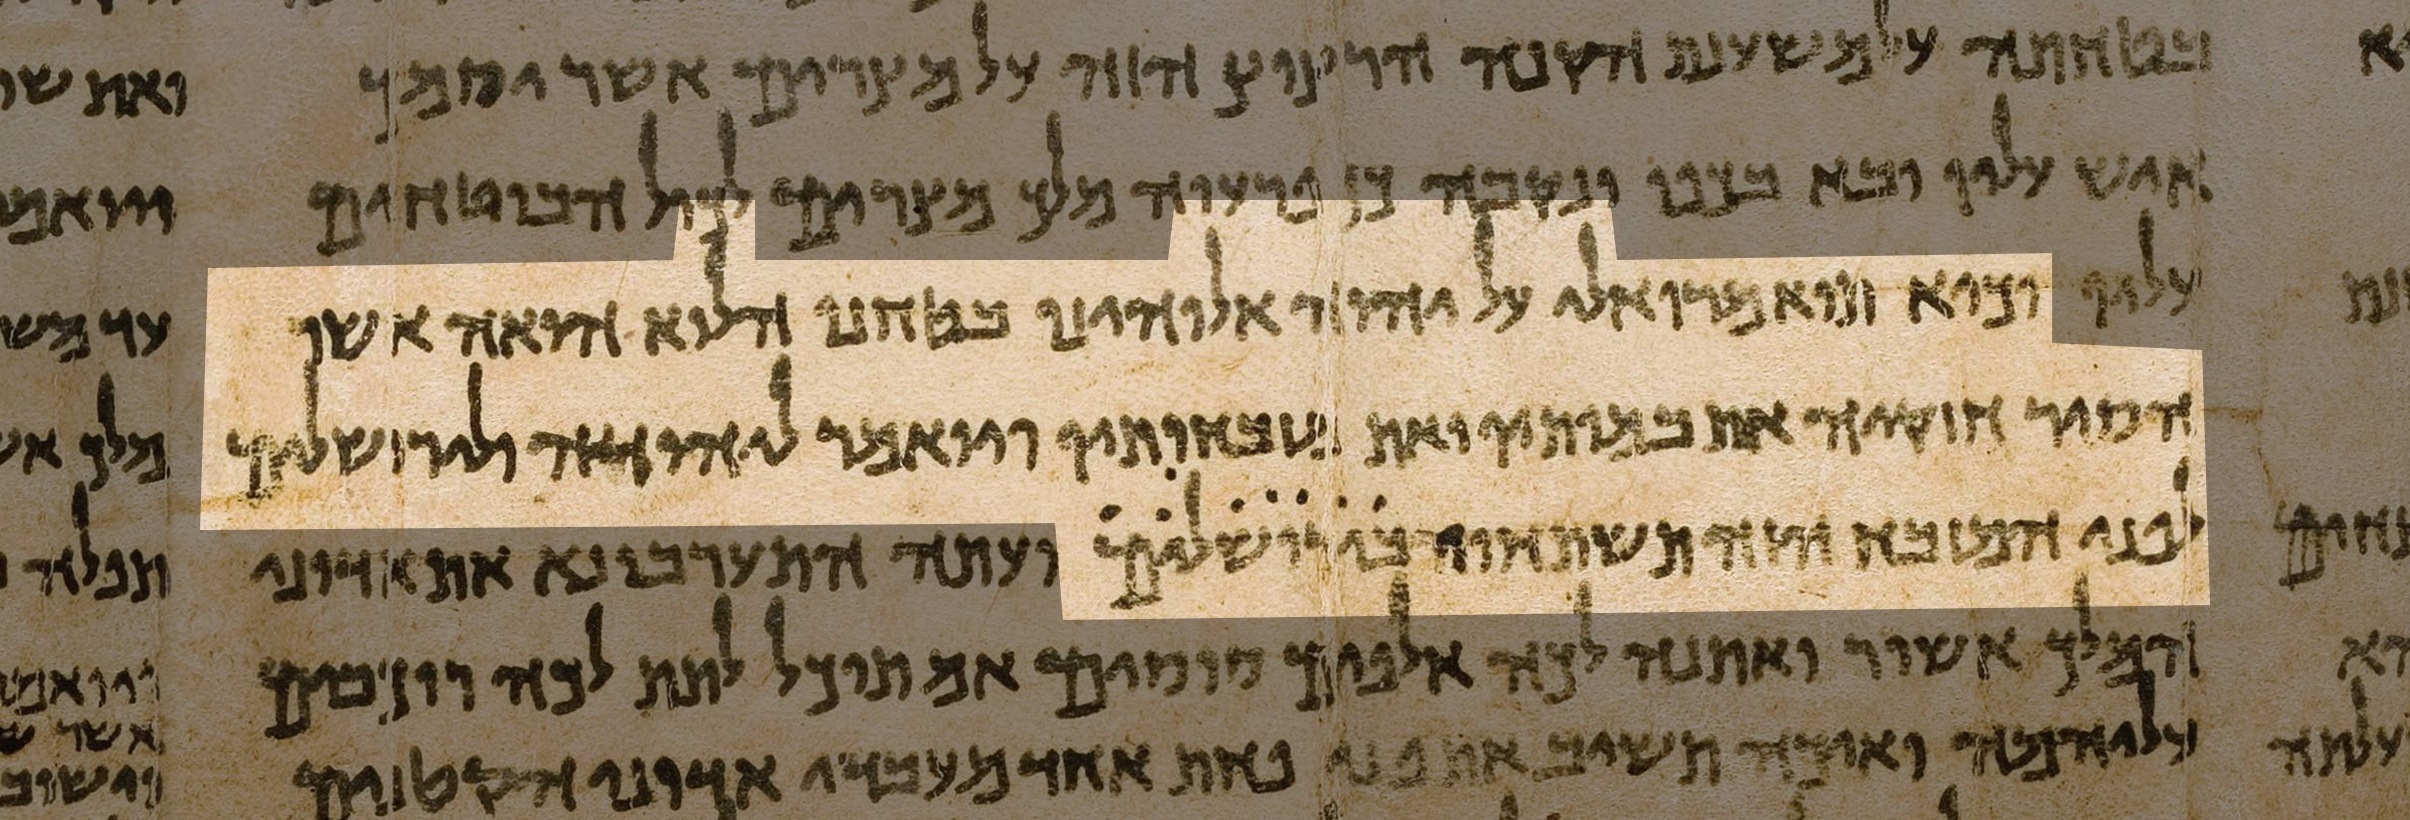 בטחתה על משענת הקנה הרצוץ הזוה על מצרים אשר יסמך
איש עליו ובא בכפו ונקבה כן פרעוה מלך מצרים לכול הבוטחים
עליו וכיא תואמרו אלי על יהוה אלוהינו בטחנו הלוא הואה אשר
הסיר חזקיה את במותיו ואת מזבחותיו ויואמר ליהודה ולירושלים
לפני המזבח הזה תשתחוו בירושלים ועתה התערבו נא את אדוני
המלך אשור ואתנה לכה אלפים סוסים אם תוכל לתת לכה רוכבים
עליהמה ואיכה תשיב את פני פחת אחד מעבדי אדוני הקטנים